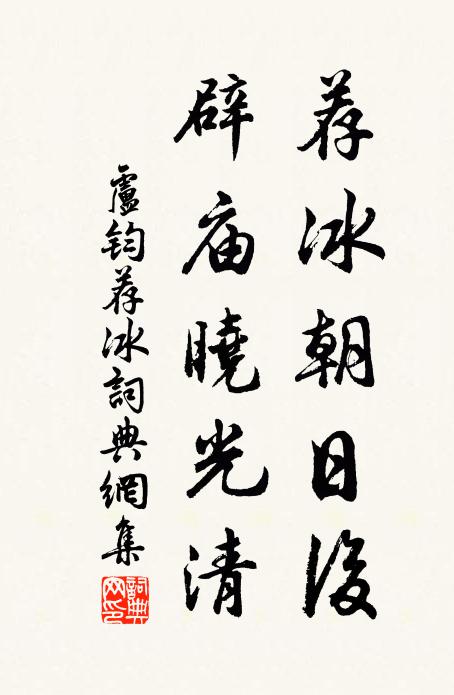 荐冰朝日後
辟庙曉光清
盧钧荐冰詞典網集
詞典
网印